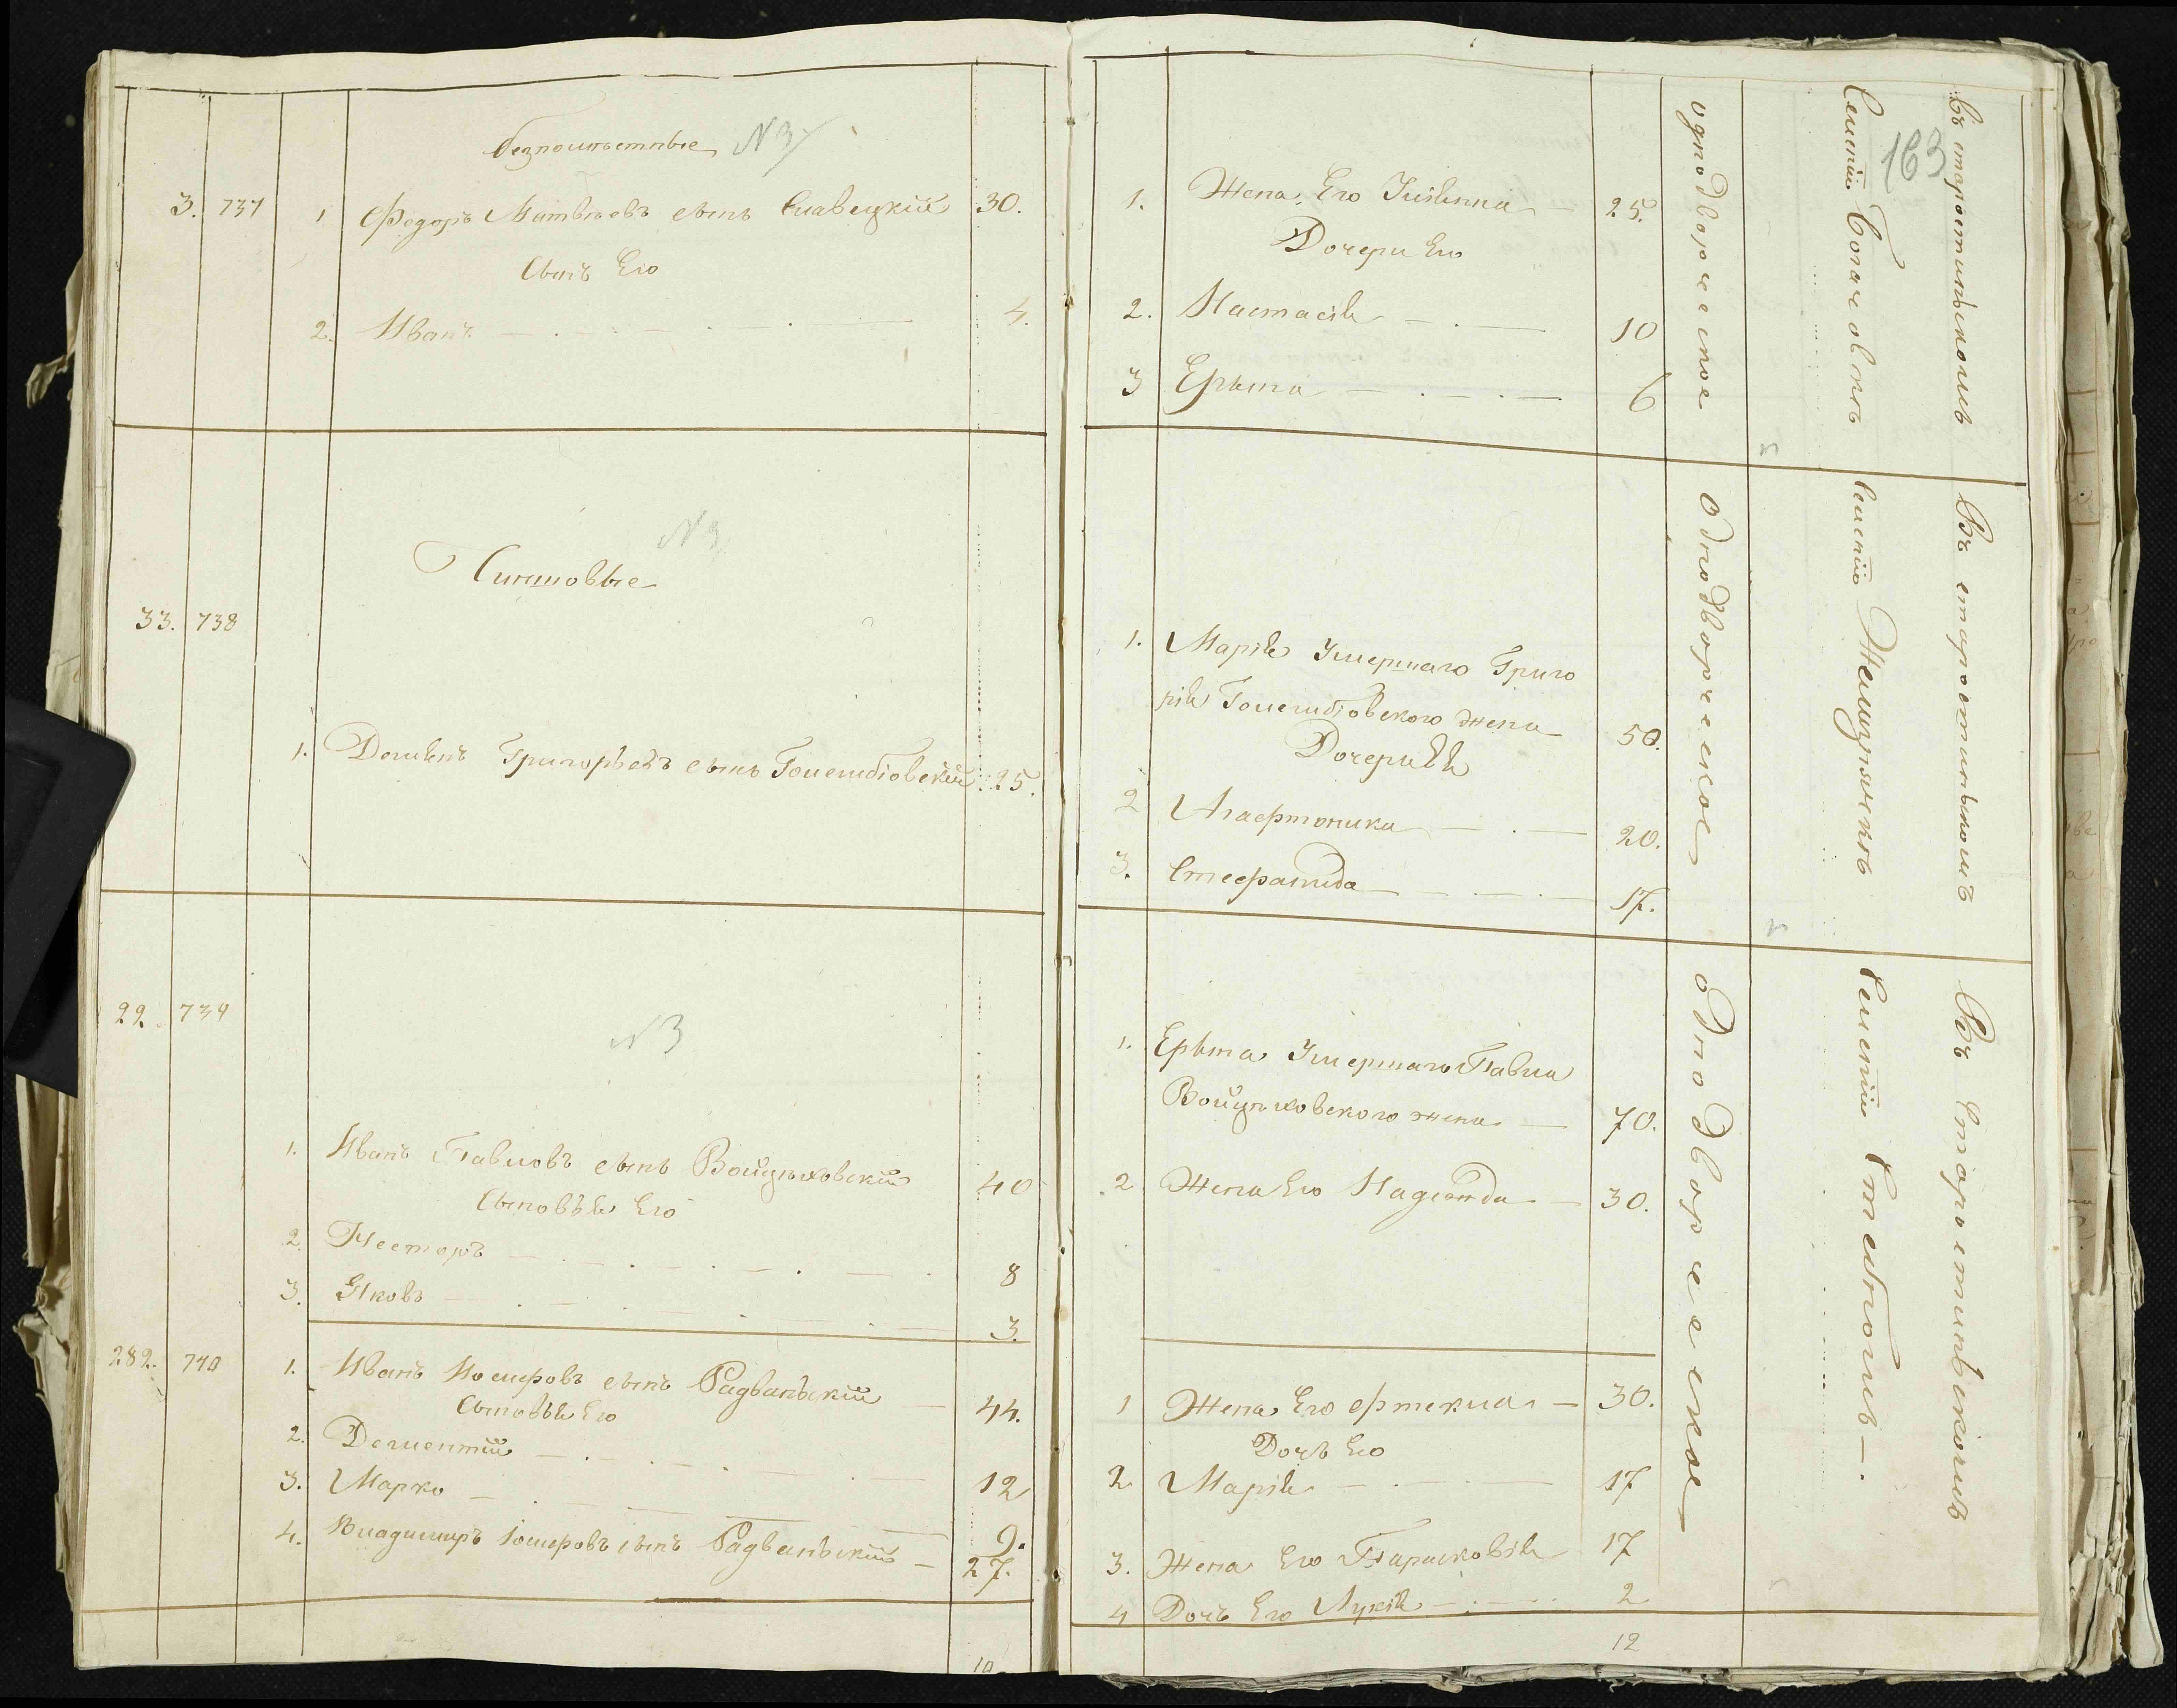 безпоместные N 3
3. 737 1 Федоръ Матвѣевъ сынъ Славецкій 30.
Сынъ Его
2. Иванъ 4.
N 3
Чиншовые
33. 738
1. Демьянъ Григорьевъ сынъ 25.
22. 739
N 3
1. Иванъ Павловъ сынъ Войцѣховскій 40
Сыновья Его
2. Несторъ 8
3. Яковъ 3.
282. 740 1. Иванъ Іосифовъ сынъ Радваньскій 44.
Сыновья Его
2. Дементій 12
3. Марко 9.
4. Владимиръ Іосифовъ сынъ Радваньскій 27.
10
163
1. Жена Его Юліянна 25.
Дочери Его
2. Настасія 10
3 Ерына 6
однодворческое
Селеніи
Въ старостинъскомъ
1. Марія Умершаго Григо
рія жена 50.
Дочери Ея
2 Агафтоника 20.
3. Стефанида 17.
Однодворческое
Селеніи
Въ старостинъскомъ
1. Ерына Умершаго Павла
Войцѣховского жена 70.
2 Жена Его Надежда 30.
1 Жена Его Фтекла 30.
Дочь Его
2 Марія 17
3. Жена Его Парасковія 17
4 Дочь Его Лукія 2
12
однодворческое
Селеніи
Въ Старостинъскомъ